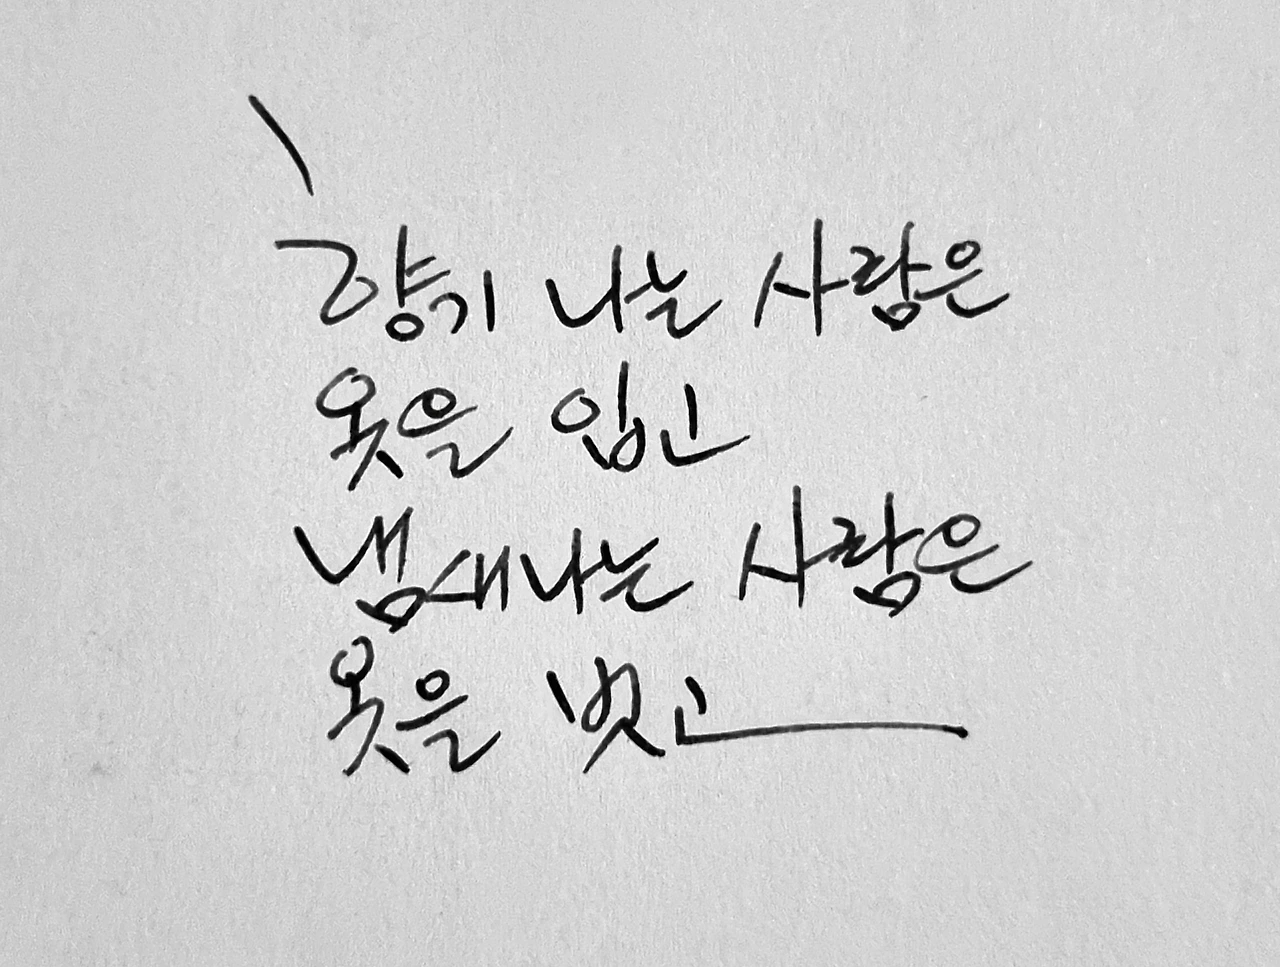 향기 나는 사람은
옷을 입고
냄새나는 사람은
옷을 벗고